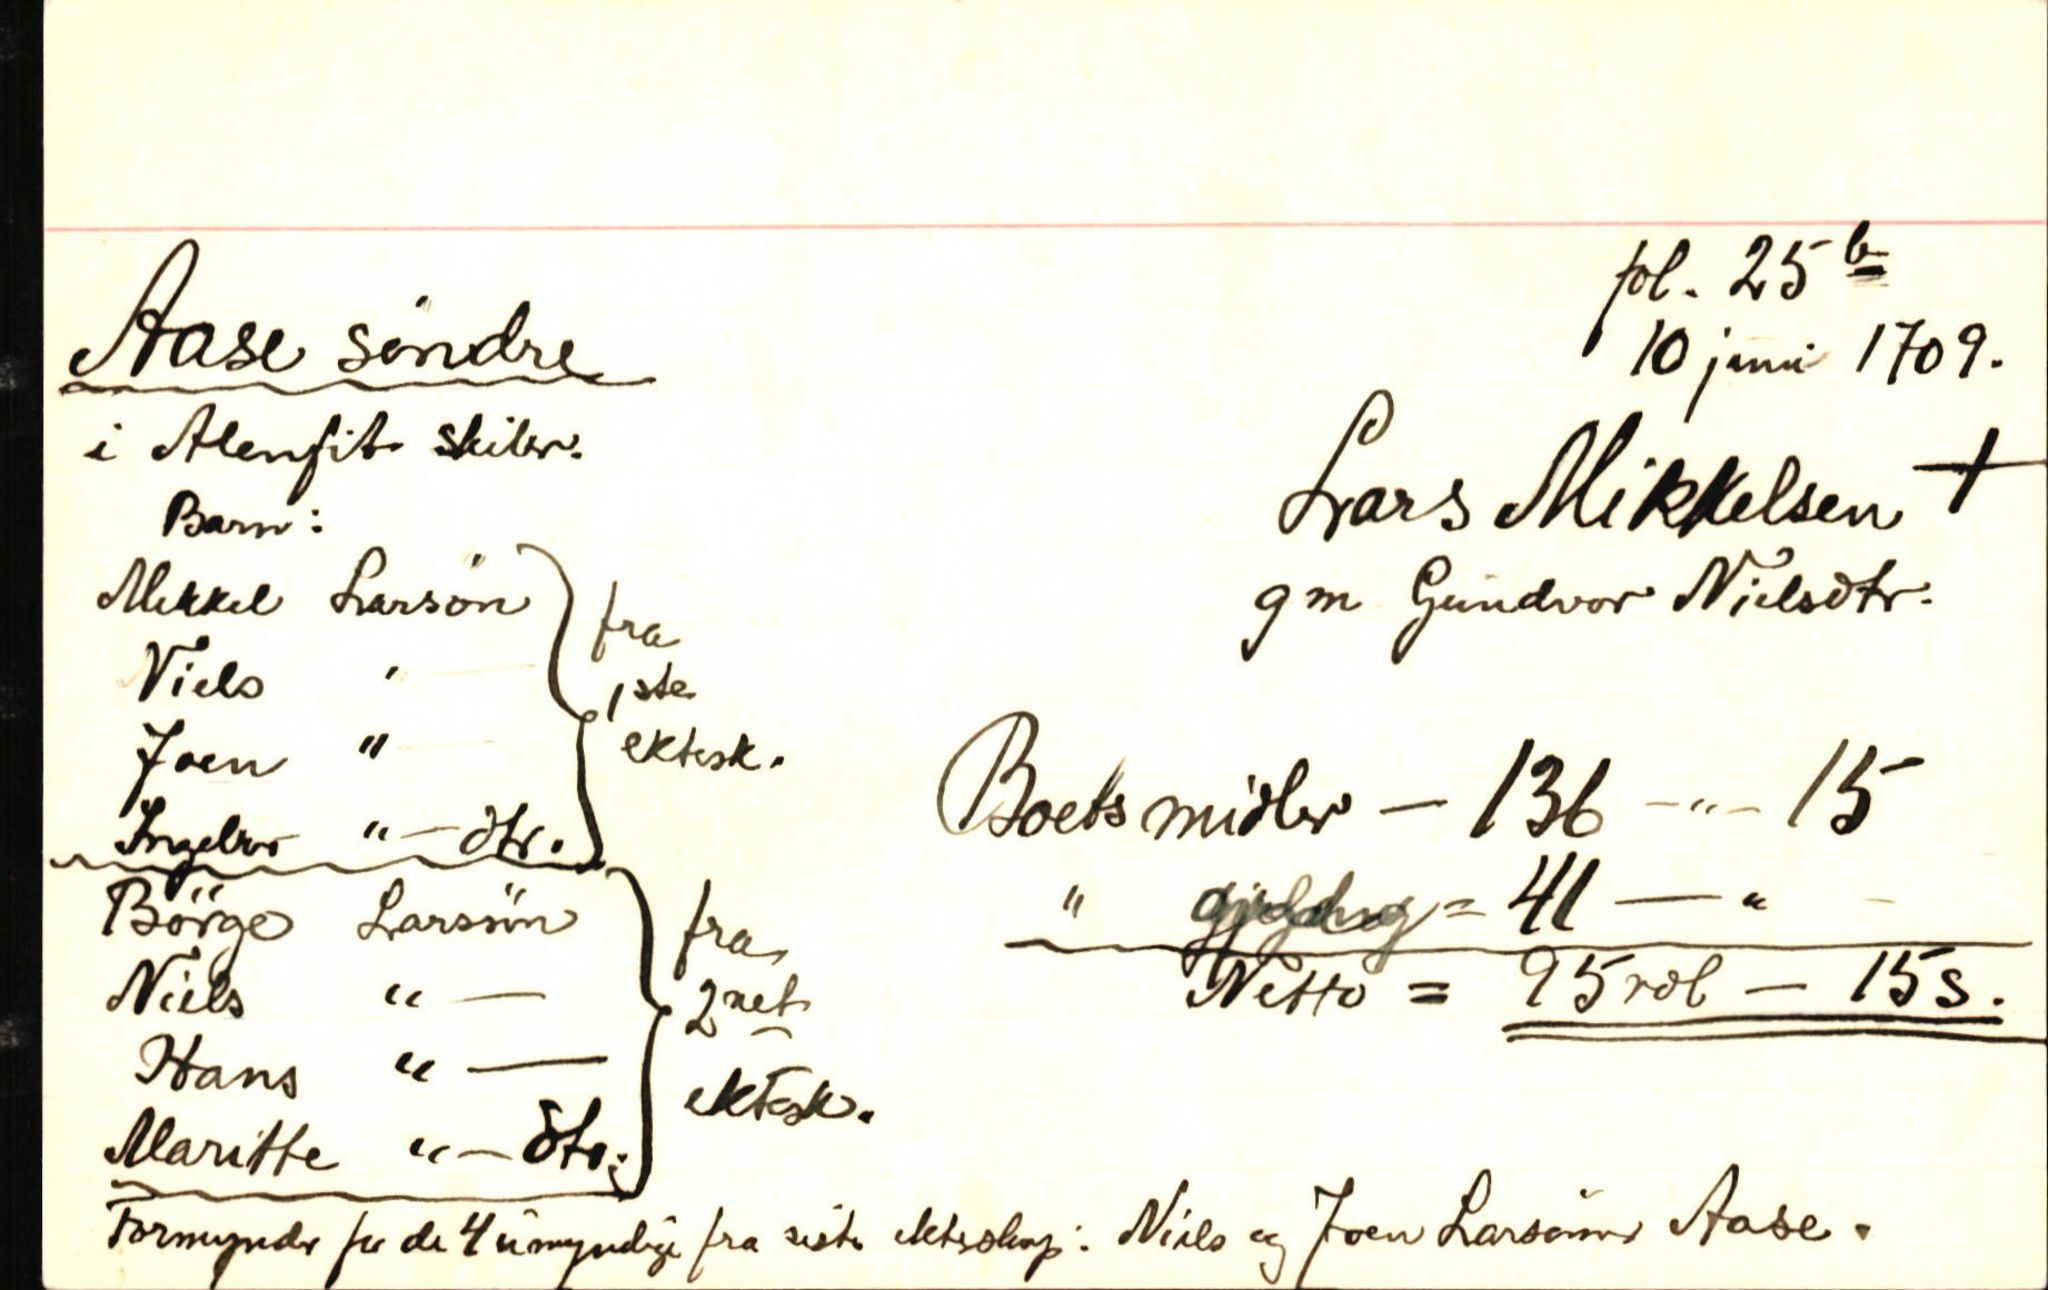 fol. 25 b
10 juni 1709.
Aase söndre
i Alenfit skibr.
Lars Mikkelsen +
gm Gundvor Nielsdtr.
Barn:
Mikkel Larsön
Niels "
Joen "
Ingebor " — dtr.
fra
1ste
ektesk.
Börge Larsön
Niels " —
Hans " —
Maritte " — dtr.
fra
2net
ektesk.
Boets midler — 136 - " - 15
" gjeld og = 41 — "
Netto = 95 rdl — 15 s.
Formynder for de 4 umyndige fra siste ekteskap: Niels og Joen Larsönner Aase.